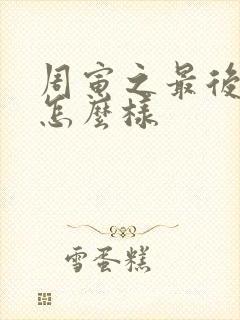 周寅之最後
怎麼樣
雪蛋糕